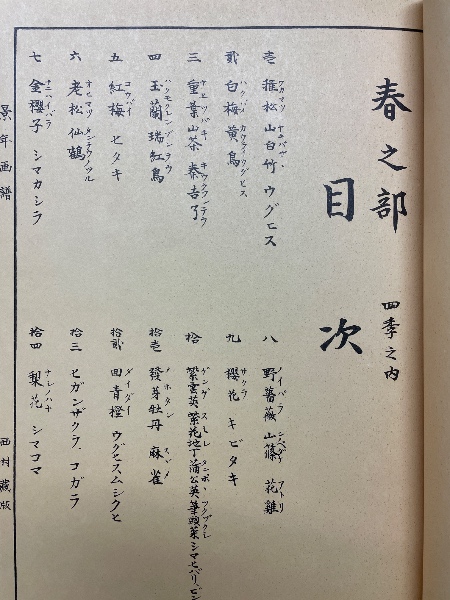 春之部
四季之内
目次
壱 稚松 山白竹 ウグヒス
弐 白梅 黄鳥
三 重葉山茶 秦吉了
四 玉蘭 瑞紅鳥
五 紅梅 ヒタキ
六 老松 仙鶴
七 金櫻子 シマカシラ
八 野薔薇 山篠 花雞
九 櫻花 キビタキ
拾 紫雲英 紫花地丁 蒲公英 筆頭菜 シマセバリ
拾壱 發芽牡丹 麻雀
拾弐 回青橙 ウグヒス
拾三 ヒガンザクラ コガラ
拾四 梨花 シマコマ
景年画譜
西村蔵版